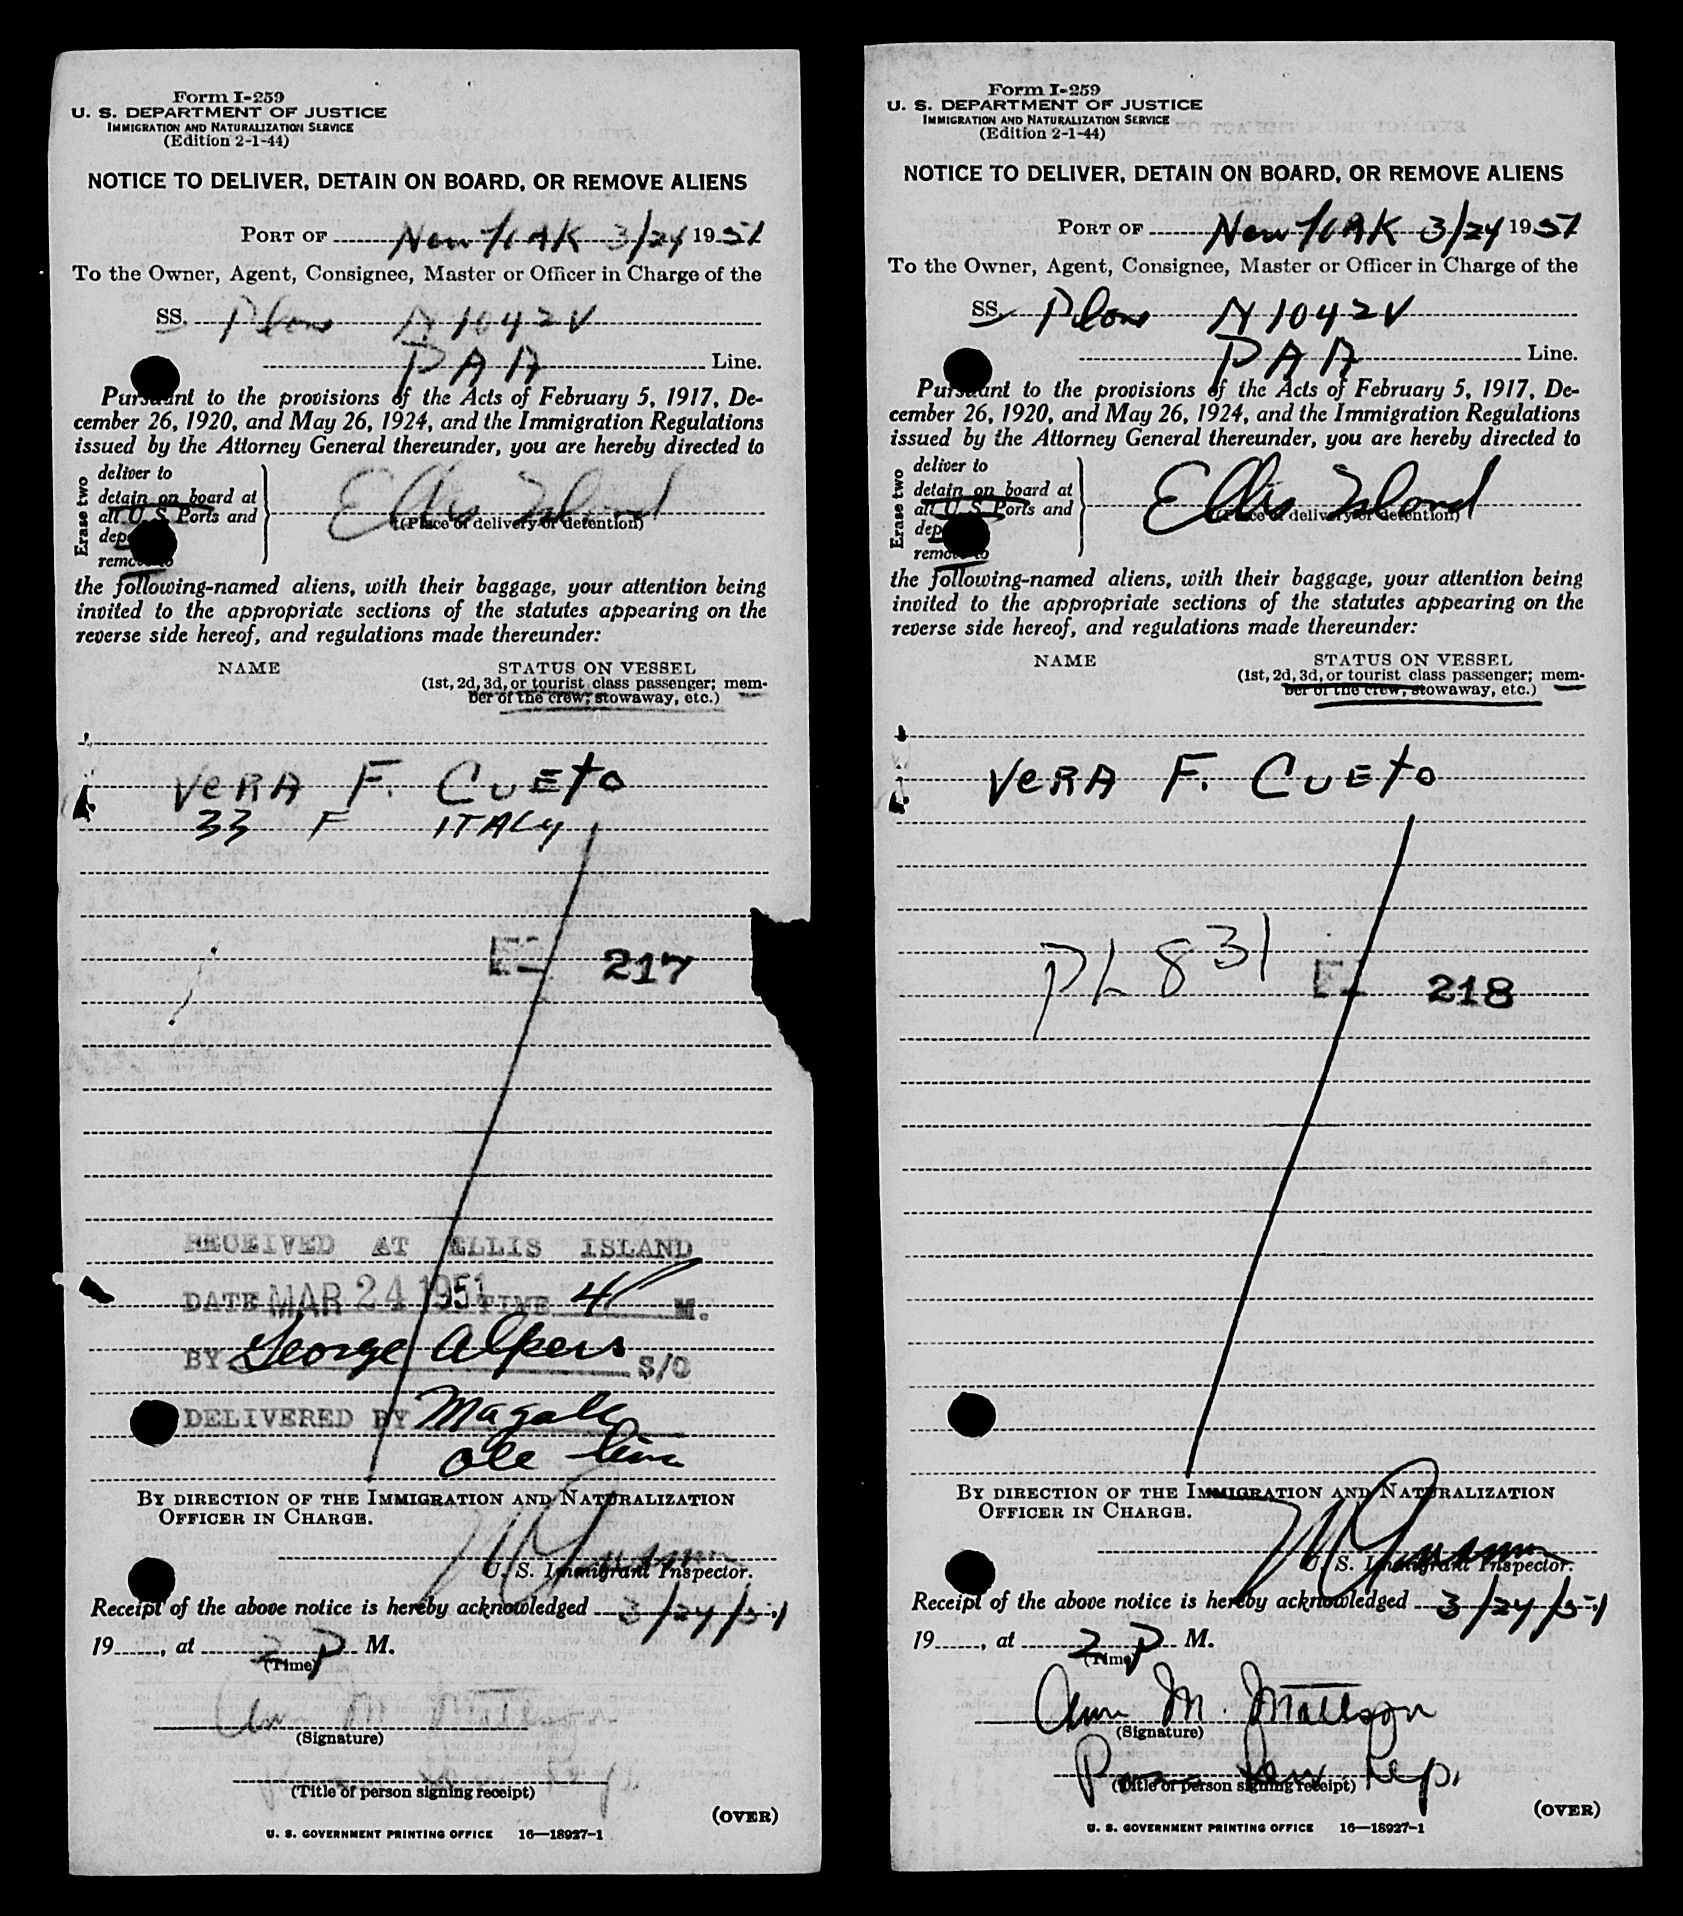 Form I-259
U. S. DEPARTMENT OF JUSTICE
IMMIGRATION AND NATURALIZATION SERVICE
(Edition 2-1-44)
NOTICE TO DELIVER, DETAIN ON BOARD, OR REMOVE ALIENS
PORT OF New York 3/24 1951
To the Owner, Agent, Consignee, Master or Officer in Charge of the
SS. Plane N 1042V
PAA Line.
Pursuant to the provisions of the Acts of February 5, 1917, De-
cember 26, 1920, and May 26, 1924, and the Immigration Regulations
issued by the Attorney General thereunder, you are hereby directed to
Erase two
deliver to
detain on board at
all U S Ports and
remove to
Ellis Island
(Place of delivery or detention)
the following-named aliens, with their baggage, your attention being
invited to the appropriate sections of the statutes appearing on the
reverse side hereof, and regulations made thereunder:
NAME STATUS ON VESSEL
(1st, 2d, 3d, or tourist class passenger; mem-
ber of the crew, stowaway, etc.)
VeRA F. CUEtO
33 F ITALy
217
RECEIVED AT ELLIS ISLAND
DATE MAR 24 1951 TIME 4 M.
BY George Alpers S/O
DELIVERED BY
BY DIRECTION OF THE IMMIGRATION AND NATURALIZATION
OFFICER IN CHARGE.
U. S. Immigrant Inspector.
Receipt of the above notice is hereby acknowledged 3/24/51
19......, at 2 P M.
(Time)
Ann M. Mattson
(Signature)
(Title of person signing receipt)
(OVER)
U. S. GOVERNMENT PRINTING OFFICE 16—18927-1
Form I-259
U. S. DEPARTMENT OF JUSTICE
IMMIGRATION AND NATURALIZATION SERVICE
(Edition 2-1-44)
NOTICE TO DELIVER, DETAIN ON BOARD, OR REMOVE ALIENS
PORT OF New York 3/24 1951
To the Owner, Agent, Consignee, Master or Officer in Charge of the
SS. Plane N 1042V
PAA Line.
Pursuant to the provisions of the Acts of February 5, 1917, De-
cember 26, 1920, and May 26, 1924, and the Immigration Regulations
issued by the Attorney General thereunder, you are hereby directed to
Erase two
deliver to
detain on board at
all U S Ports and
remove to
Ellis Island
(Place of delivery or detention)
the following-named aliens, with their baggage, your attention being
invited to the appropriate sections of the statutes appearing on the
reverse side hereof, and regulations made thereunder:
NAME STATUS ON VESSEL
(1st, 2d, 3d, or tourist class passenger; mem-
ber of the crew, stowaway, etc.)
VeRA F. CUEtO
PL 831
218
BY DIRECTION OF THE IMMIGRATION AND NATURALIZATION
OFFICER IN CHARGE.
U. S. Immigrant Inspector.
Receipt of the above notice is hereby acknowledged 3/24/51
19......, at 2 P M.
(Time)
Ann M. Mattson
(Signature)
Pass Serv Rep.
(Title of person signing receipt)
(OVER)
U. S. GOVERNMENT PRINTING OFFICE 16—18927-1